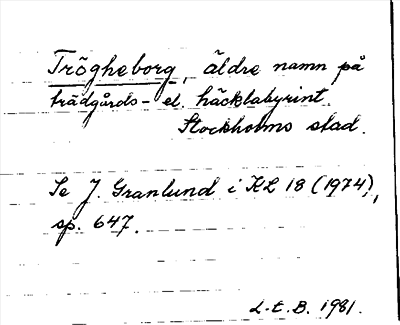 Trögheborg, äldre namn på
trädgårds- el. häcklabyrint.
Stockholms stad.
Se J. Granlund i KL 18 (1974),
sp. 647.
L.E.B. 1981.